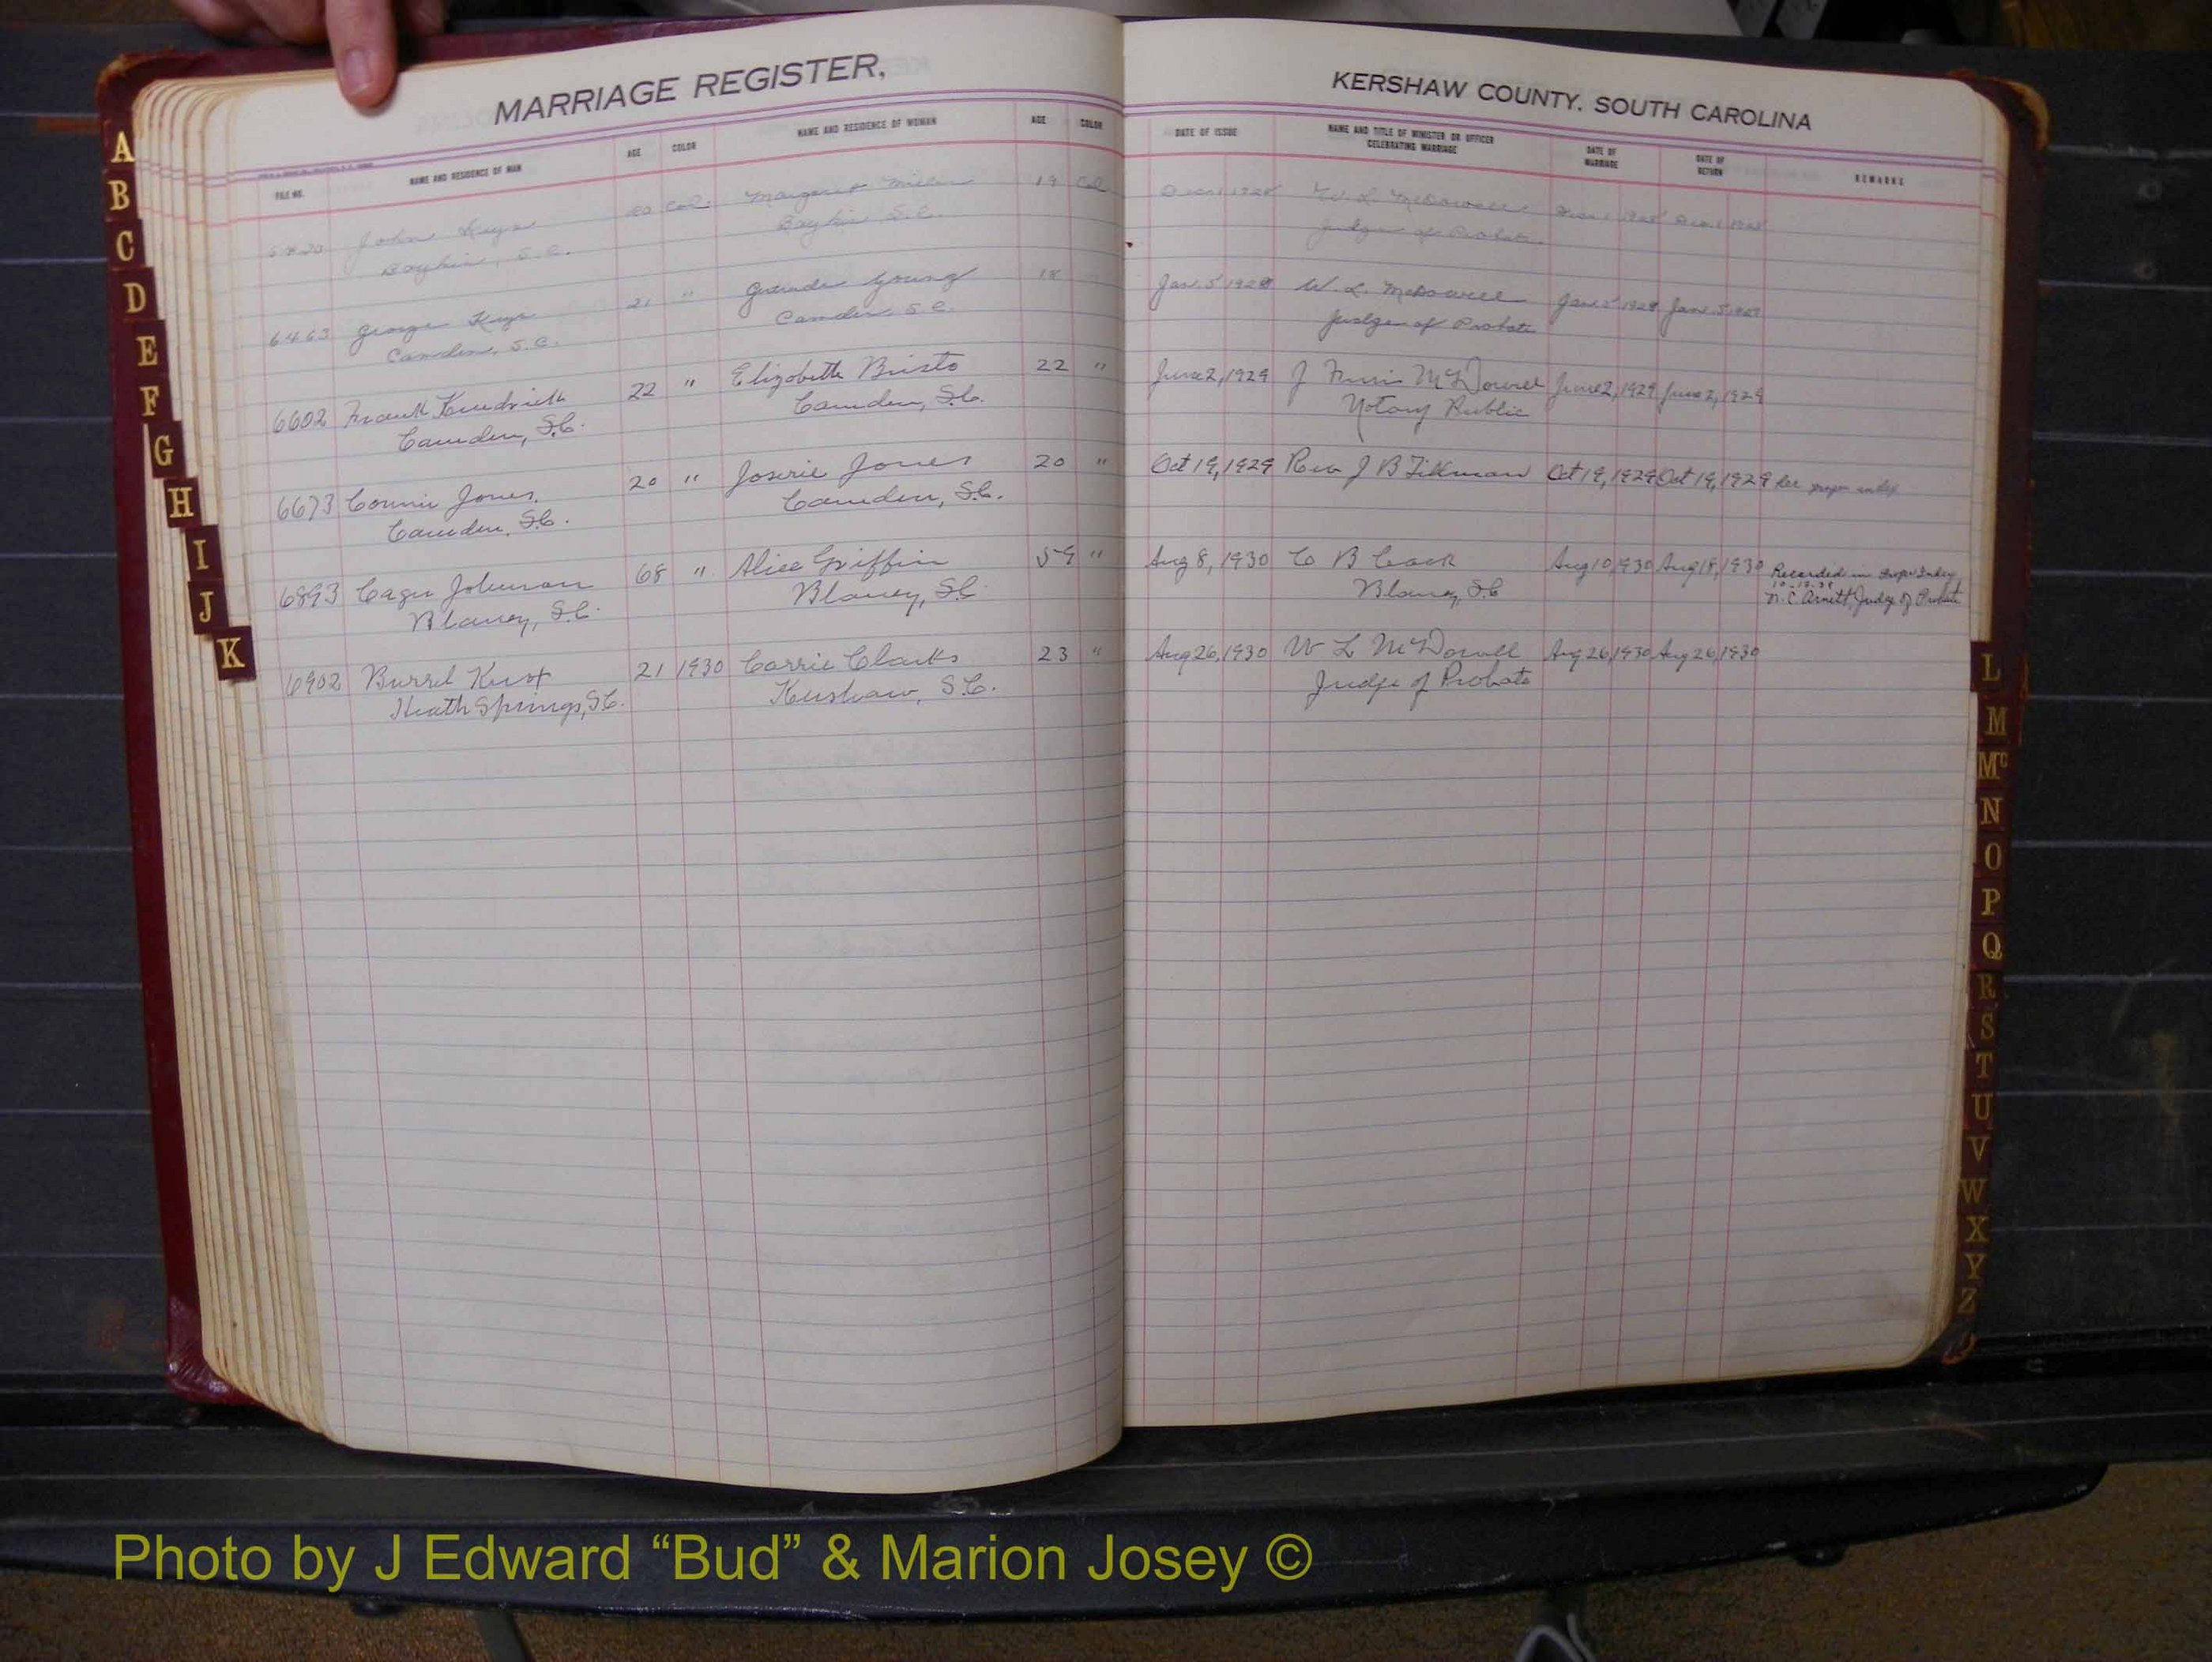 MARRIAGE REGISTER,
KERSHAW COUNTY. SOUTH CAROLINA
FILE NO. NAME AND RESIDENCE OF MAN AGE COLOR NAME AND RESIDENCE OF WOMAN AGE COLOR DATE OF ISSUE NAME AND TITLE OF MINISTER OR OFFICER CELEBRATING MARRIAGE DATE OF MARRIAGE DATE OF RETURN REMARKS
John Keys 20 Col. Margaret 19 Col W. L. McDowell
Boykin, S.C. Boykin S.C. Judge of Probate
6463 George Keys 21 " Young 18 Jan. 5 1929 W. L. McDowell Jan. 5 1929 Jan. 5 1929
Camden, S.C. Camden S.C. Judge of Probate
6602 Frank Kendrick 22 " Elizabeth Bristo 22 " June 2, 1929 J McDowell June 2, 1929 June 2, 1929
Camden, S.C. Camden, S.C. Notary Public
6673 Connie Jones 20 " Joserie Jones 20 " Oct 19, 1929 Rev J B Tillman Oct 19, 1929 Oct 19, 1929 See proper index
Camden, S.C. Camden, S.C.
6893 Cager Johnson 68 " Alice Griffin 59 " Aug 8, 1930 C B Cook Aug 10 1930 Aug 18, 1930 Recorded in Proper Index
Blaney, S.C. Blaney, S.C. Blaney, S.C. N. C. Arnett, Judge of Probate
6902 Burrel 21 1930 Carrie Clarks 23 " Aug 26, 1930 W L McDowell Aug 26 1930 Aug 26, 1930
Heath Springs, S.C. Kershaw, S.C. Judge of Probate
A
B
C
D
E
F
G
H
I
J
K
L
M
Mc
N
O
P
Q
R
S
T
U
V
W
X
Y
Z
Photo by J Edward “Bud” & Marion Josey ©